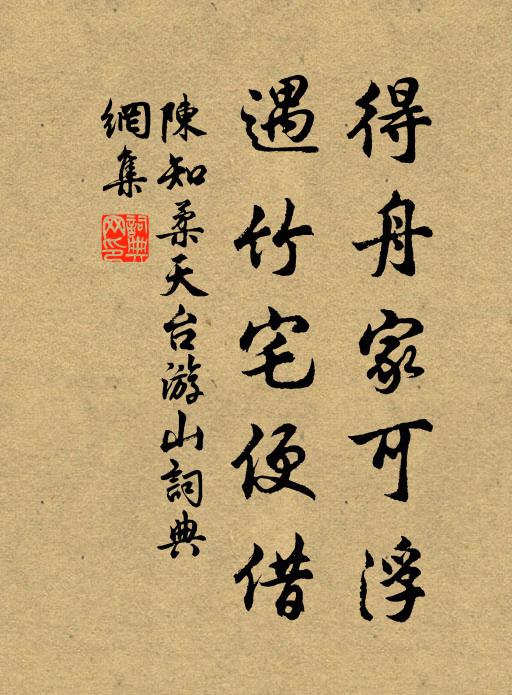 得舟家可浮
遇竹宅便借
陳知柔天台游山詞典
網集
詞典
网印